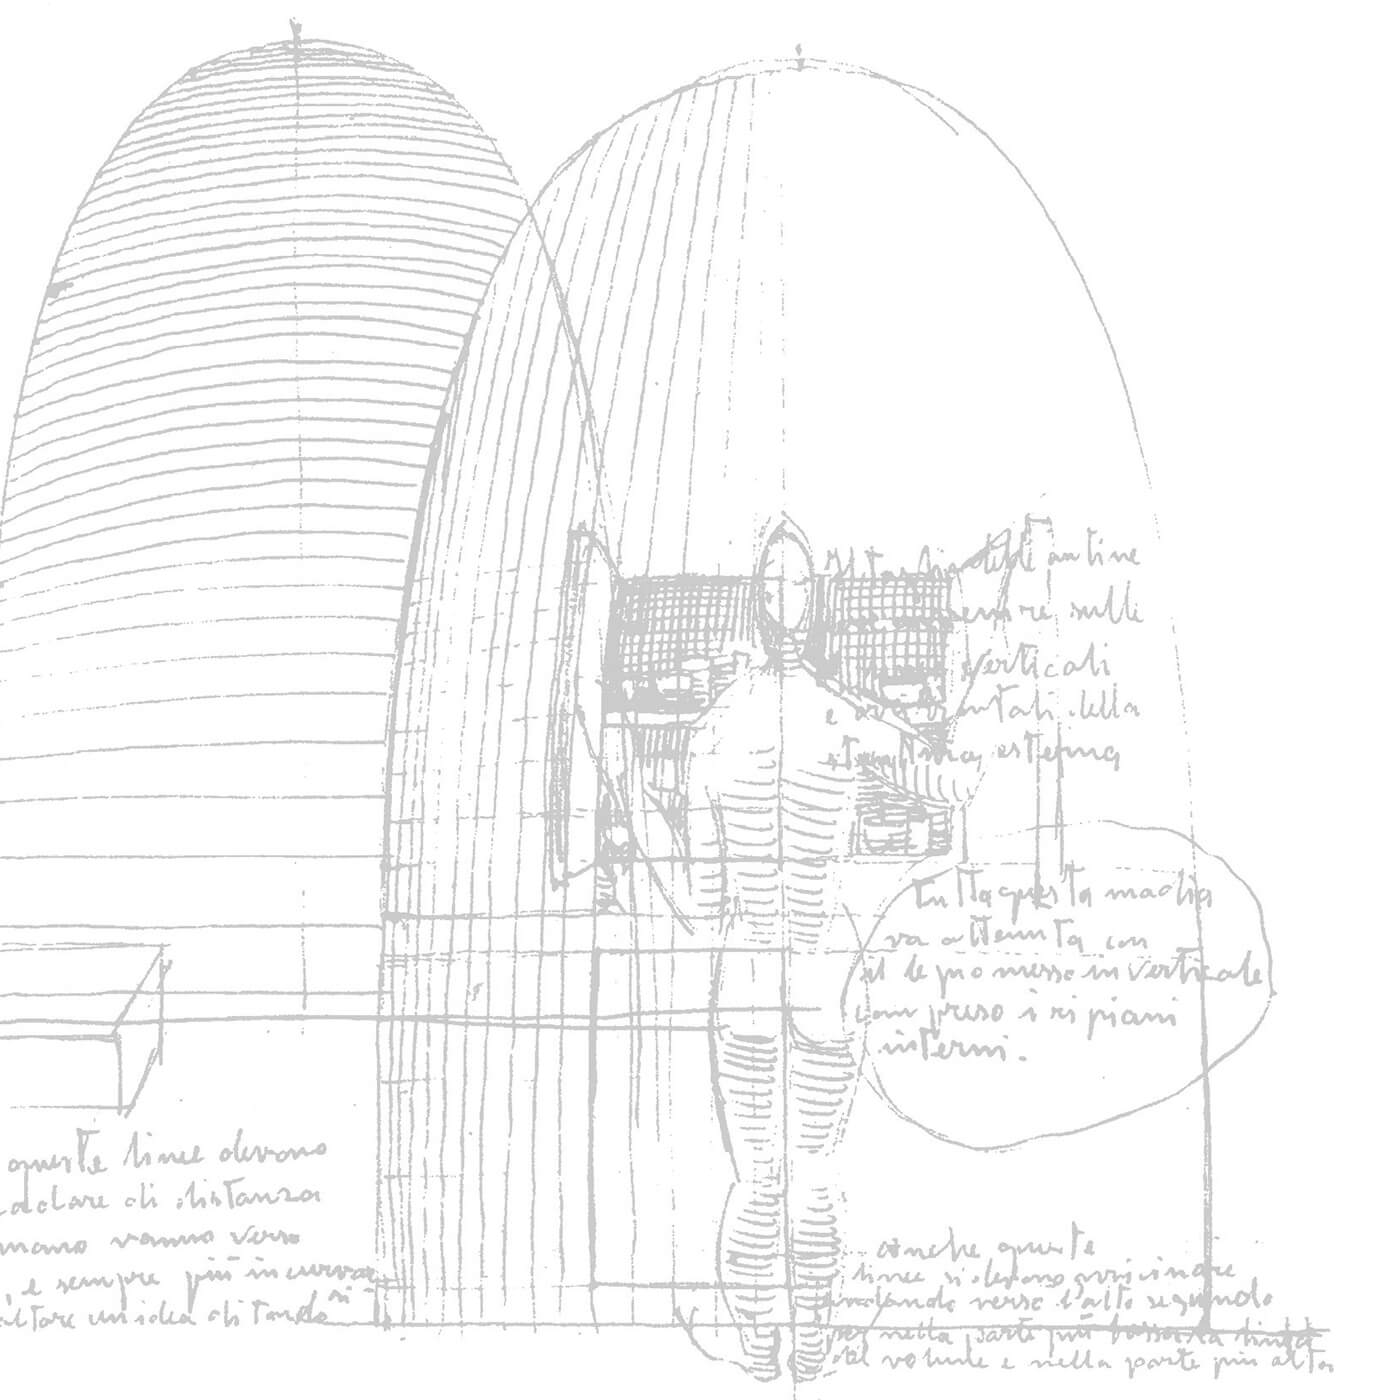 delle antine
sempre sulle
verticali
e orizzontali della
struttura esterna
Tutta questa maglia
va attenuta con
il legno messo in verticale
compreso i ripiani
interni.
queste linee devono
di distanza
mano vanno verso
, e sempre più incurvar
si
un idea di tondo
Anche queste
linee si devono avvicinare
andando verso l'alto segundo
nella parte più bassa la
del volume e nella parte più alta